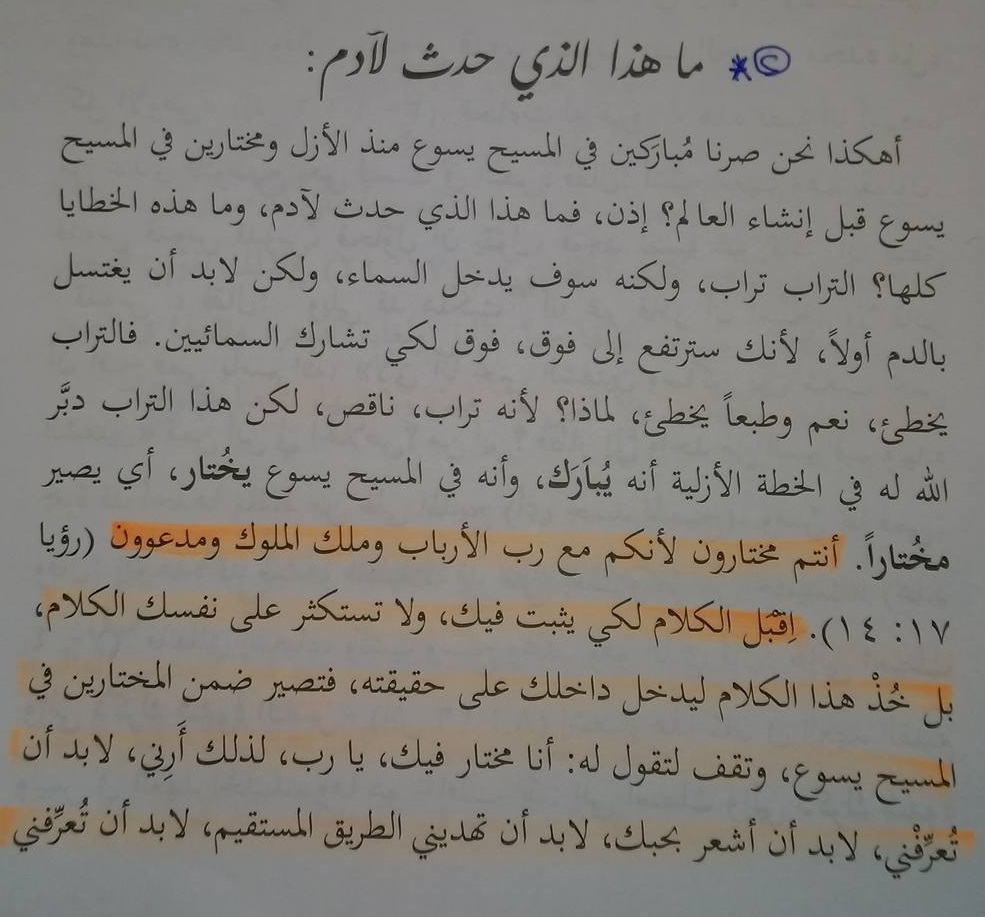 © * ما هذا الذي حدث لآدم:
أهكذا نحن صرنا مُبارَكين في المسيح يسوع منذ الأزل ومختارين في المسيح
يسوع قبل إنشاء العالم؟ إذن، فما هذا الذي حدث لآدم، وما هذه الخطايا
كلها؟ التراب تراب، ولكنه سوف يدخل السماء، ولكن لابد أن يغتسل
بالدم أولاً، لأنك سترتفع إلى فوق، فوق لكي تشارك السمائيين. فالتراب
يخطئ، نعم وطبعاً يخطئ، لماذا؟ لأنه تراب، ناقص، لكن هذا التراب دبَّر
الله له في الخطة الأزلية أنه يُبارَك، وأنه في المسيح يسوع يخُتار، أي يصير
مخُتاراً. أنتم مختارون لأنكم مع رب الأرباب وملك الملوك ومدعوون (رؤيا
١٧: ١٤). اِقْبَل الكلام لكي يثبت فيك، ولا تستكثر على نفسك الكلام،
بل خُذْ هذا الكلام ليدخل داخلك على حقيقته، فتصير ضمن المختارين في
المسيح يسوع، وتقف لتقول له: أنا مختار فيك، يا رب، لذلك أَرِني، لابد أن
تُعرِّفْني، لابد أن أشعر بحبك، لابد أن تهديني الطريق المستقيم، لابد أن تُعرِّفني